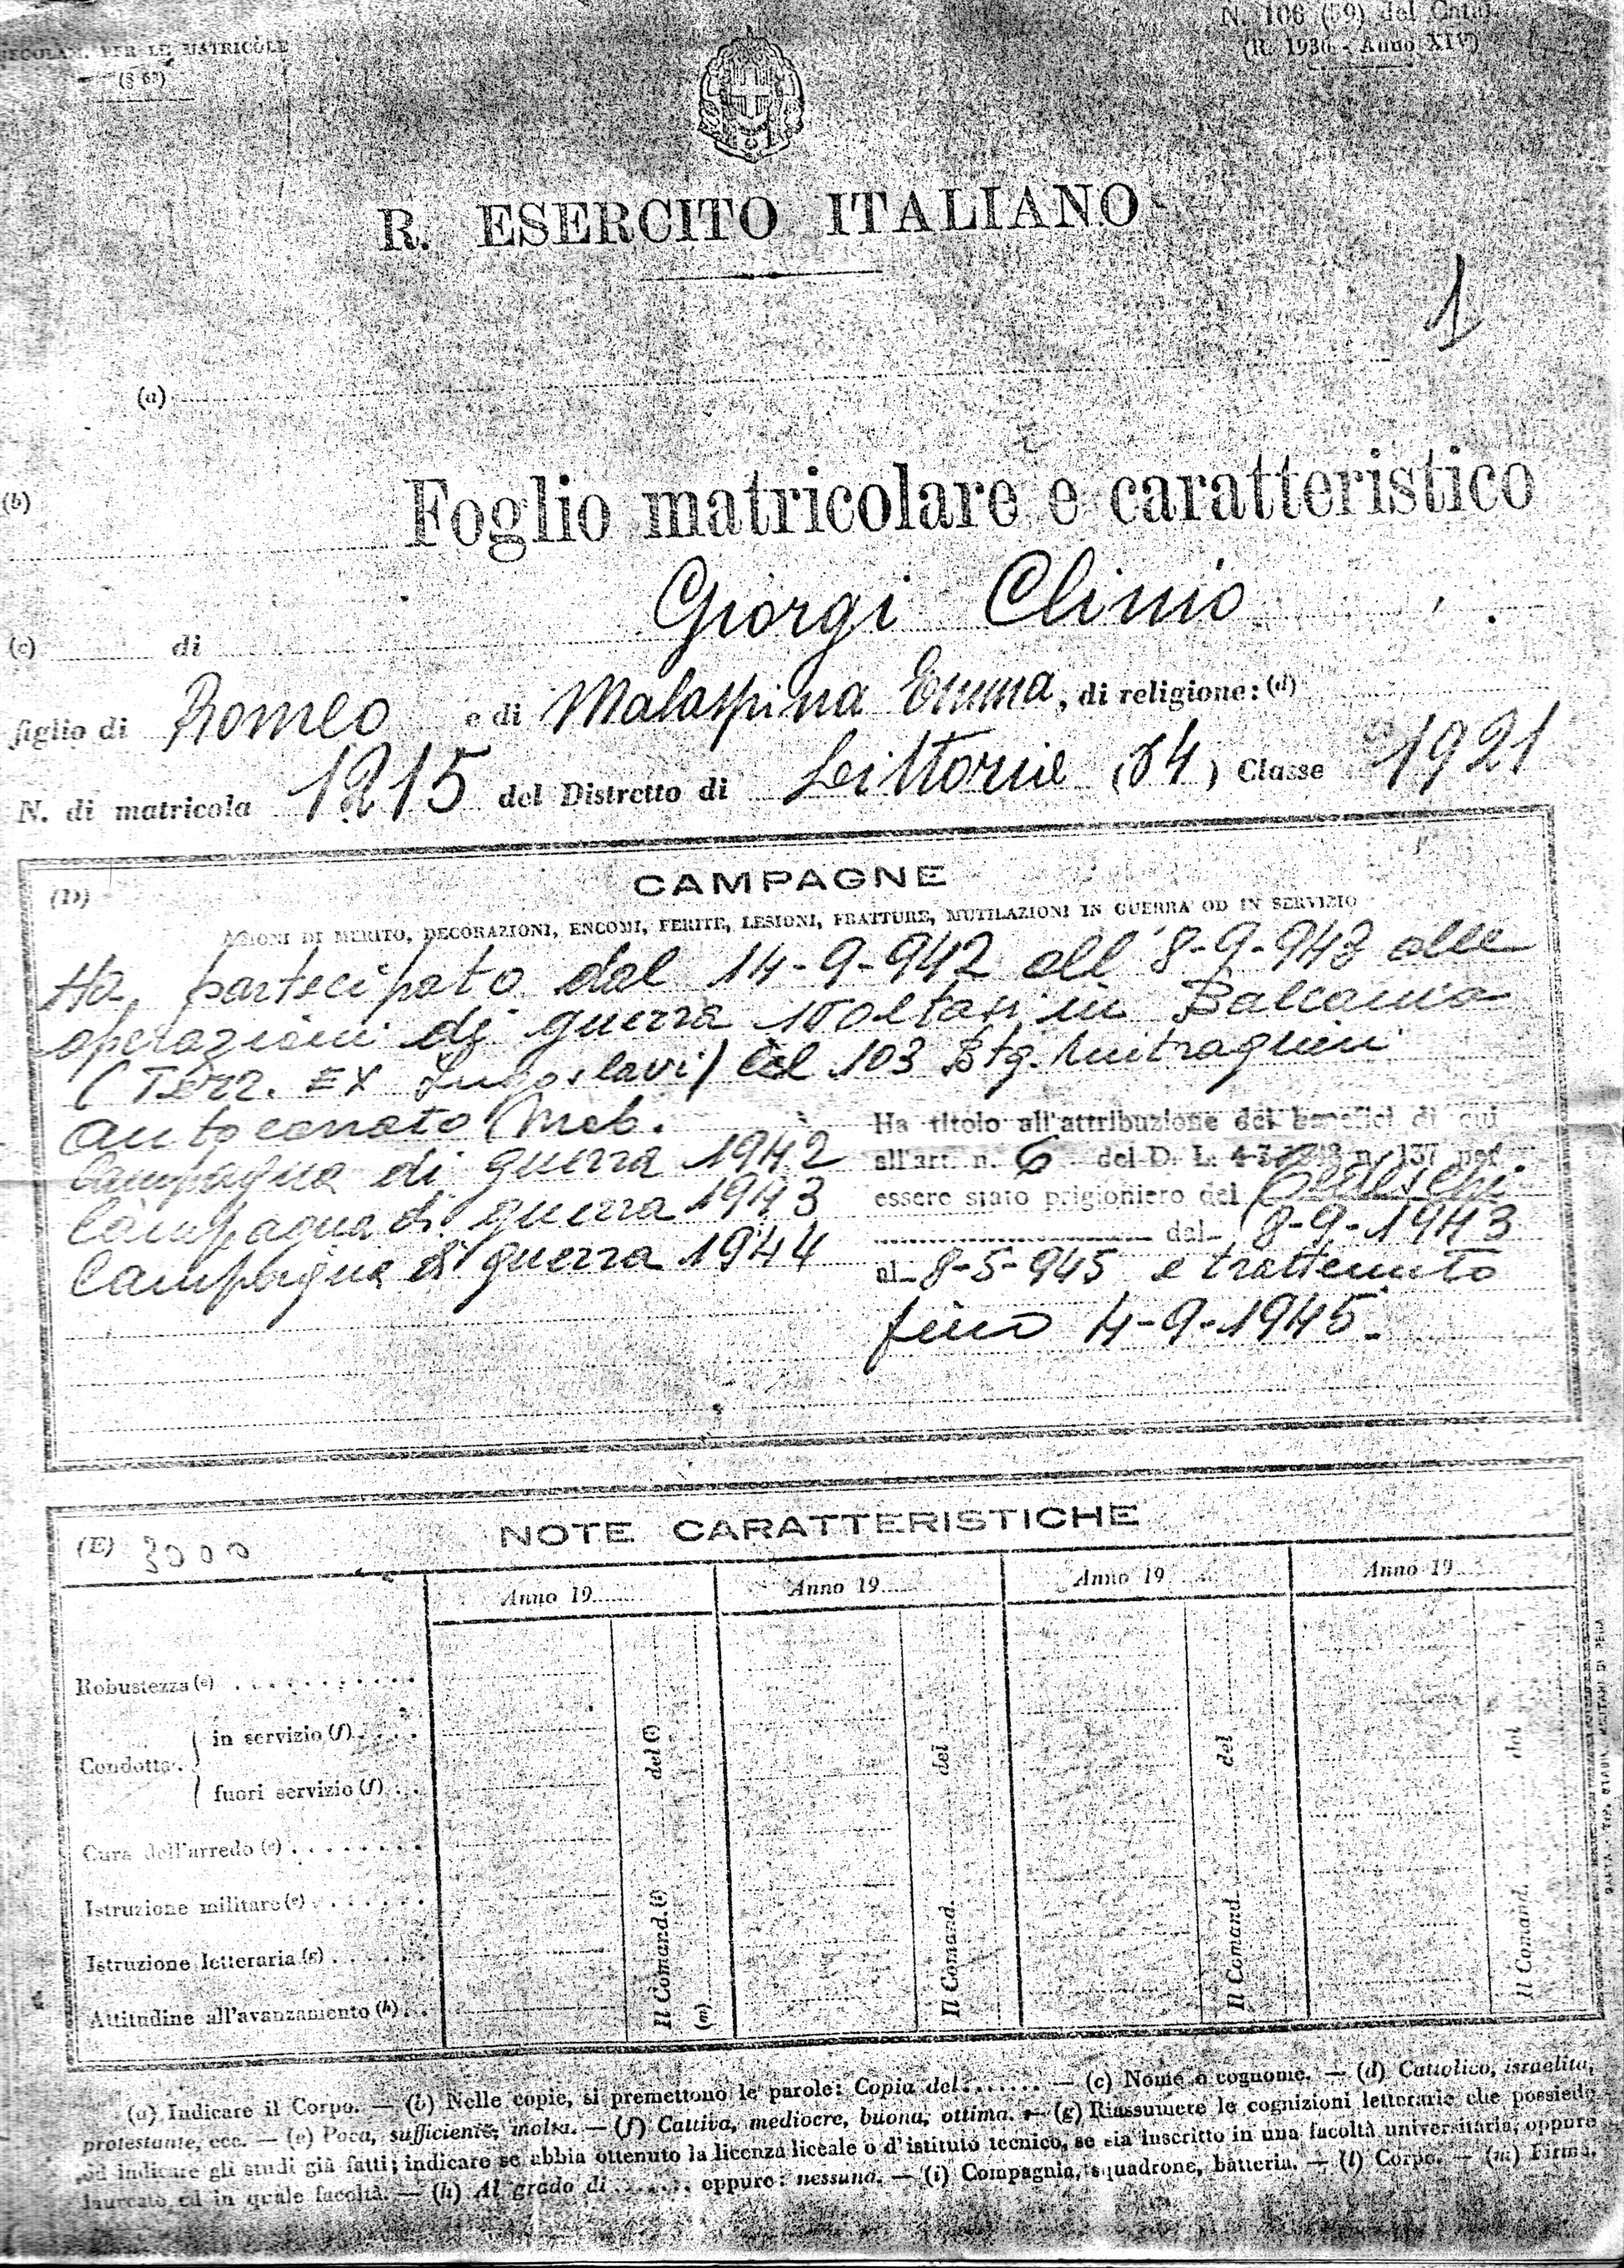 REGOLAM. PER LE MATRICOLE
(§ 63)
N. 106 (59) del Catal.
(R. 1936 - Anno XIV)
R. ESERCITO ITALIANO
1
(a)
(b)
Foglio matricolare e caratteristico
(c) di Giorgi Clinio
figlio di Romeo e di Malaspina Emma, di religione: (d)
N. di matricola 1215 del Distretto di Littoria (84) Classe 1921
(D)
CAMPAGNE
AZIONI DI MERITO, DECORAZIONI, ENCOMI, FERITE, LESIONI, FRATTURE, MUTILAZIONI IN GUERRA OD IN SERVIZIO
Ha partecipato dal 14-9-942 all'8-9-943 alle
operazioni di guerra svoltasi in Balcania
(Terr. EX Jugoslavi) col 103 Btg. Mitraglieri
autocarrato Mob.
Campagna di guerra 1942
Campagna di guerra 1943
Campagna di guerra 1944
Ha titolo all'attribuzione dei benefici di cui
all'art. n. 6 del D. L. 4-3-1948 n. 137 per
essere stato prigioniero dei Tedeschi
dal 8-9-1943
al 8-5-945 e trattenuto
fino 4-9-1945.
(E) 3000
NOTE CARATTERISTICHE
Anno 19 Anno 19 Anno 19 Anno 19
Robustezza (e)
Condotta
in servizio (f)
fuori servizio (f)
Cura dell'arredo (e)
Istruzione militare (e)
Istruzione letteraria (g)
Attitudine all'avanzamento (h)
Il Comand. (i) del (l)
(m)
Il Comand. del
Il Comand. del
Il Comand. del
(a) Indicare il Corpo. — (b) Nelle copie, si premettono le parole: Copia del....... — (c) Nome e cognome. — (d) Cattolico, israelita,
protestante, ecc. — (e) Poca, sufficiente, molta. — (f) Cattiva, mediocre, buona, ottima. — (g) Riassumere le cognizioni letterarie che possiede
od indicare gli studi già fatti; indicare se abbia ottenuto la licenza liceale o d'istituto tecnico, se sia inscritto in una facoltà universitaria, oppure
laureato ed in quale facoltà. — (h) Al grado di ....... oppure: nessuna. — (i) Compagnia, squadrone, batteria. — (l) Corpo. — (m) Firma.